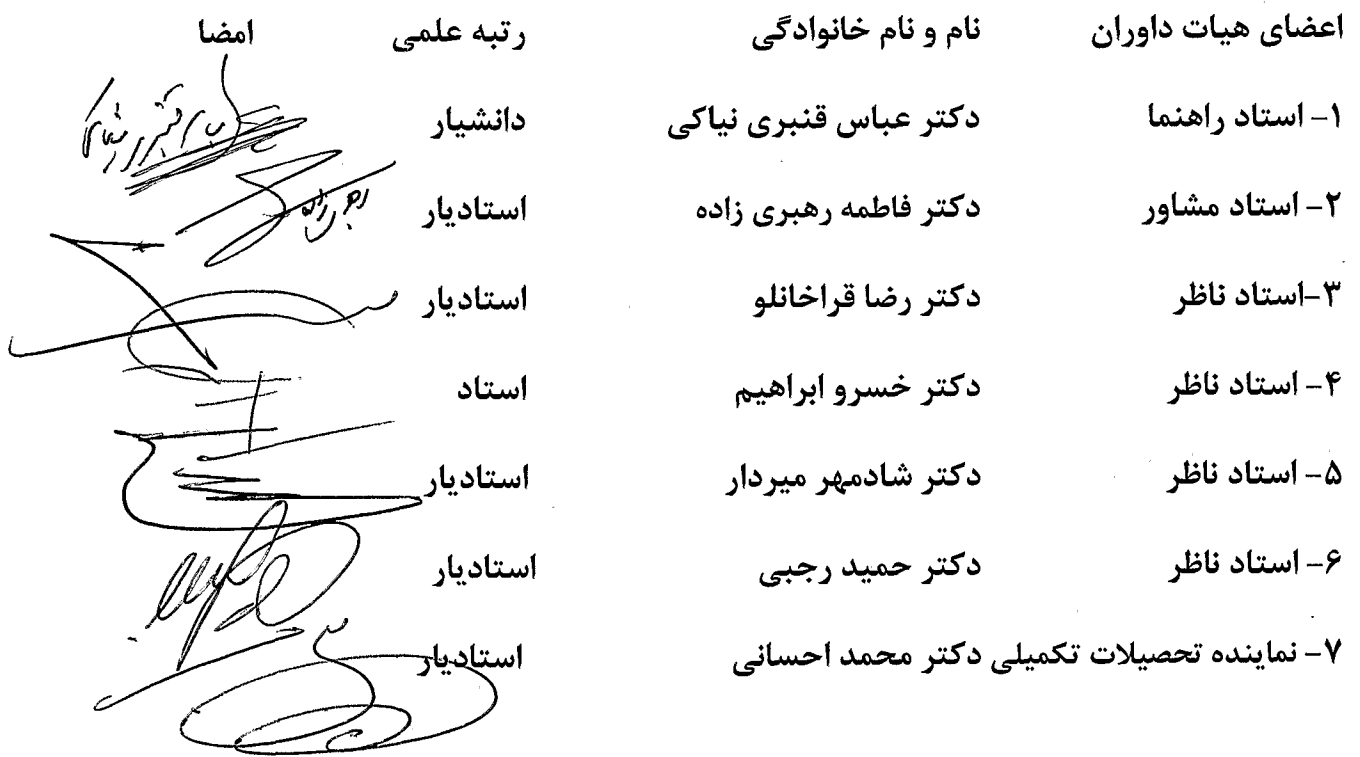 اعضای هیات داوران نام و نام خانوادگی رتبه علمی امضا
۱- استاد راهنما دکتر عباس قنبری نیاکی دانشیار
۲- استاد مشاور دکتر فاطمه رهبری زاده استادیار
۳-استاد ناظر دکتر رضا قراخانلو استادیار
۴- استاد ناظر دکتر خسرو ابراهیم استاد
۵- استاد ناظر دکتر شادمهر میردار استادیار
۶- استاد ناظر دکتر حمید رجبی استادیار
۷- نماینده تحصیلات تکمیلی دکتر محمد احسانی استادیار